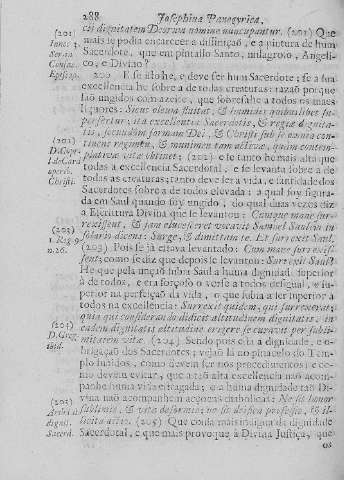 288 Josephina Panegyrica.
eis dignitatem Deorum nomine nuncupantur. (201) Que
mais se podia encarecer a distinçaõ, e a pintura de hum
Sacerdote, que em pintallo Santo, milagroso, Angeli-
co, e Divino?
(201)
Innoc. 3.
Ser. in
Consec.
200 E se isto he, e deve ser hum Sacerdote; se a sua
excellencia he sobre a de todas creaturas: razaõ porque
saõ ungidos com azeite, que sobresahe a todos os mais
liquores: Sicut oleum fluitat, & humidis quibuslibet su-
perfertur, ita excellentia Sacerdotis, & regiæ dignita-
tis, secundum formam Dei, & Christi sub se omnia con-
tinens regimen, & munimen tam activæ, quàm contem-
plativæ vitæ obtinet; (202) e se tanto he mais alta que
todas a excellencia Sacerdotal, e se levanta sobre a de
todas as creaturas; tanto deve ser a vida, e santidade dos
Sacerdotes sobre a de todos elevada: a qual foy figura-
da em Saul quando foy ungido, do qual duas vezes diz
a Escritura Divina que se levantou: Cumque mane sur-
rexissent, & jam elucesceret vocavit Samuel Saulem in
solario dicens: Surge, & dimittam te. Et surrexit Saul,
(203) Pois se já estava levantado: Cum mane surrexis-
sent; como se diz que depois se levantou: Surrexit Saul?
(202)
D. Greg.
(203)
1. Reg. 9.
n. 26.
He que pela unçaõ subia Saul a huma dignidade superior
à de todos, e era forçoso o verse a todos desigual, e su-
perior na perfeiçaõ da vida, o que subia a ser superior à
todos na excellencia: Surrexit quidem, qui surrexerat;
quia qui considerando didicit altitudinem dignitatis, in
eadem dignitatis altitudine erigere se curavit per subli-
mitatem vitæ (204) Sendo pois esta a dignidade, e o-
brigaçaõ dos Sacerdotes; vejaõ lá no pinaculo do Tem-
plo subidos, como devem ser nos procedimentos; e co-
mo devem evitar, que a taõ alta excellencia naõ acom-
panhe huma vida estragada; e a huma dignidade taõ Di-
vina naõ acompanhem acçoens diabolicas: Ne sit honor
sublimis, & vita deformis; ne sit deifica professio, & il-
licita actio. (205) Que cousa mais indigna da dignidade
Sacerdotal, e que mais provoque à Divina Justiça, que
(204)
D. Greg.
ibid.
(205)
dignit.
Sacerd.
os